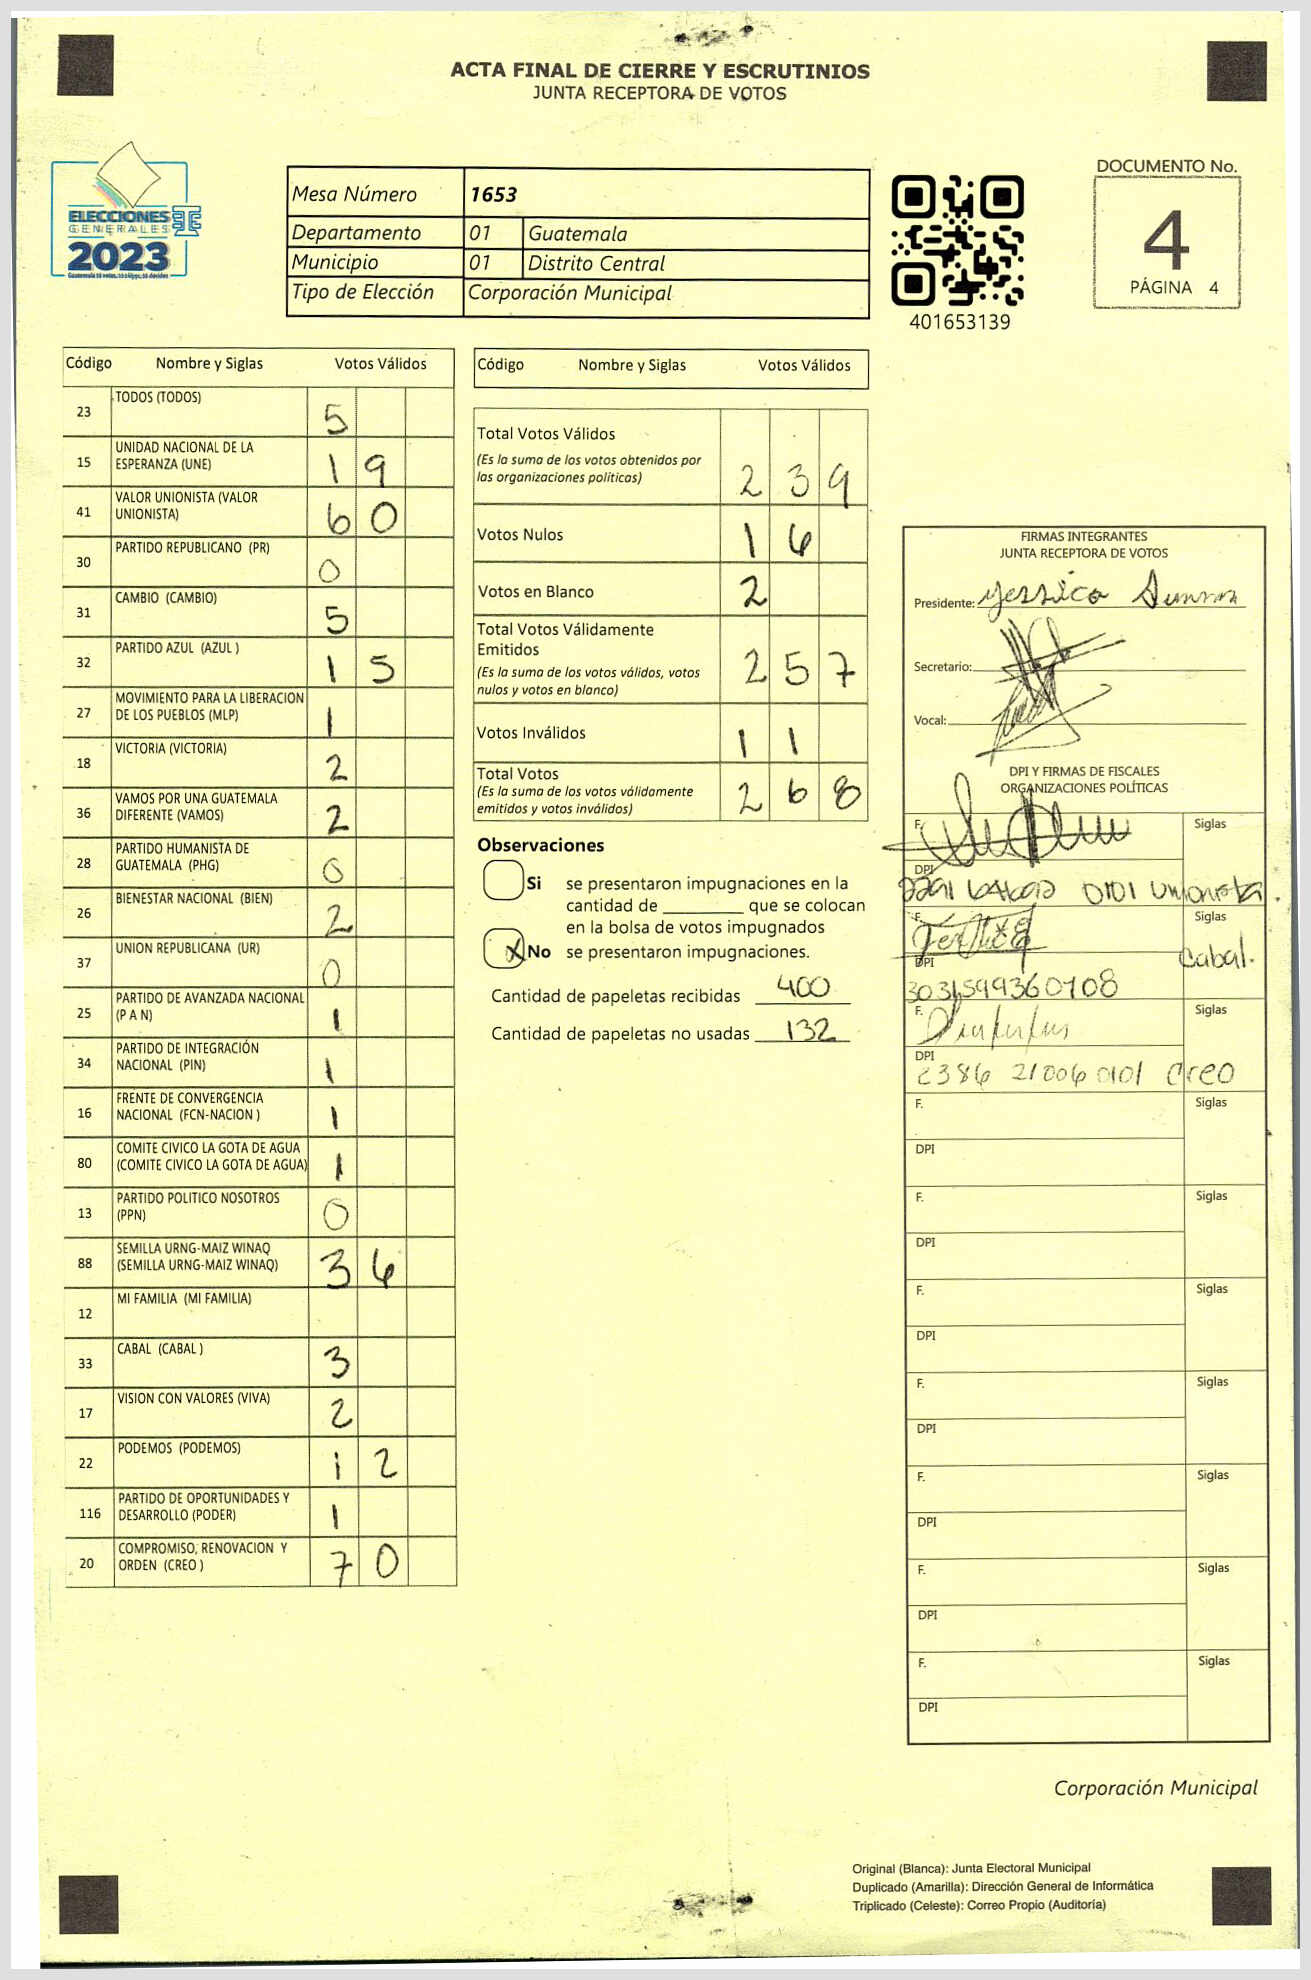 ACTA FINAL DE CIERRE Y ESCRUTINIOS
JUNTA RECEPTORA DE VOTOS
ELECCIONES
GENERALES
2023
Mesa Número 1653
Departamento 01 Guatemala
Municipio 01 Distrito Central
Tipo de Elección Corporación Municipal
401653139
DOCUMENTO No.
4
PÁGINA 4
Código Nombre y Siglas Votos Válidos
23 TODOS (TODOS) 5
15 UNIDAD NACIONAL DE LA
ESPERANZA (UNE) 1 9
41 VALOR UNIONISTA (VALOR
UNIONISTA) 6 0
30 PARTIDO REPUBLICANO (PR) 0
31 CAMBIO (CAMBIO) 5
32 PARTIDO AZUL (AZUL ) 1 5
27 MOVIMIENTO PARA LA LIBERACION
DE LOS PUEBLOS (MLP) 1
18 VICTORIA (VICTORIA) 2
36 VAMOS POR UNA GUATEMALA
DIFERENTE (VAMOS) 2
28 PARTIDO HUMANISTA DE
GUATEMALA (PHG) 0
26 BIENESTAR NACIONAL (BIEN) 2
37 UNION REPUBLICANA (UR) 0
25 PARTIDO DE AVANZADA NACIONAL
(P A N) 1
34 PARTIDO DE INTEGRACIÓN
NACIONAL (PIN) 1
16 FRENTE DE CONVERGENCIA
NACIONAL (FCN-NACION ) 1
80 COMITE CIVICO LA GOTA DE AGUA
(COMITE CIVICO LA GOTA DE AGUA) 1
13 PARTIDO POLITICO NOSOTROS
(PPN) 0
88 SEMILLA URNG-MAIZ WINAQ
(SEMILLA URNG-MAIZ WINAQ) 3 6
12 MI FAMILIA (MI FAMILIA)
33 CABAL (CABAL ) 3
17 VISION CON VALORES (VIVA) 2
22 PODEMOS (PODEMOS) 1 2
116 PARTIDO DE OPORTUNIDADES Y
DESARROLLO (PODER) 1
20 COMPROMISO, RENOVACION Y
ORDEN (CREO ) 7 0
Código Nombre y Siglas Votos Válidos
Total Votos Válidos
(Es la suma de los votos obtenidos por
las organizaciones políticas) 2 3 9
Votos Nulos 1 6
Votos en Blanco 2
Total Votos Válidamente
Emitidos
(Es la suma de los votos válidos, votos
nulos y votos en blanco) 2 5 7
Votos Inválidos 1 1
Total Votos
(Es la suma de los votos válidamente
emitidos y votos inválidos) 2 6 8
Observaciones
Si se presentaron impugnaciones en la
cantidad de ________ que se colocan
en la bolsa de votos impugnados
X No se presentaron impugnaciones.
Cantidad de papeletas recibidas 400
Cantidad de papeletas no usadas 132
FIRMAS INTEGRANTES
JUNTA RECEPTORA DE VOTOS
Presidente:
Secretario:
Vocal:
DPI Y FIRMAS DE FISCALES
ORGANIZACIONES POLÍTICAS
F. Siglas
DPI
0101 Unionista.
F. Siglas
Cabal.
DPI
F. Siglas
DPI
2386 21006 0101 Creo
F. Siglas
DPI
F. Siglas
DPI
F. Siglas
DPI
F. Siglas
DPI
F. Siglas
DPI
F. Siglas
DPI
F. Siglas
DPI
Corporación Municipal
Original (Blanca): Junta Electoral Municipal
Duplicado (Amarilla): Dirección General de Informática
Triplicado (Celeste): Correo Propio (Auditoría)